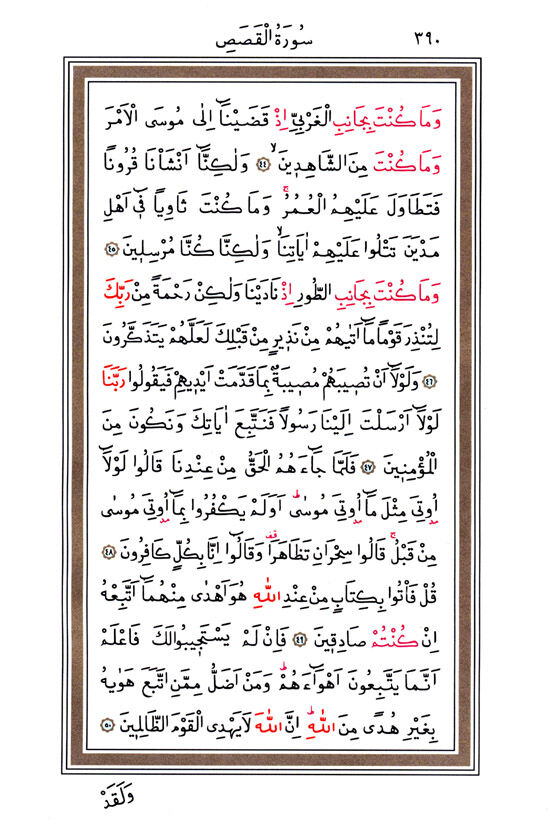 ٣٩٠ سُورَةُ الْقَصَصِ
وَمَا كُنْتَ بِجَانِبِ الْغَرْبِيِّ اِذْ قَضَيْنَٓا اِلٰى مُوسَى الْاَمْرَ
وَمَا كُنْتَ مِنَ الشَّاهِد۪ينَۙ ﴿٤٤﴾ وَلٰكِنَّٓا اَنْشَأْنَا قُرُونًا
فَتَطَاوَلَ عَلَيْهِمُ الْعُمُرُۚ وَمَا كُنْتَ ثَاوِيًا ف۪ٓي اَهْلِ
مَدْيَنَ تَتْلُوا عَلَيْهِمْ اٰيَاتِنَاۙ وَلٰكِنَّا كُنَّا مُرْسِل۪ينَ ﴿٤٥﴾
وَمَا كُنْتَ بِجَانِبِ الطُّورِ اِذْ نَادَيْنَا وَلٰكِنْ رَحْمَةً مِنْ رَبِّكَ
لِتُنْذِرَ قَوْمًا مَٓا اَتٰيهُمْ مِنْ نَذ۪يرٍ مِنْ قَبْلِكَ لَعَلَّهُمْ يَتَذَكَّرُونَ
﴿٤٦﴾ وَلَوْلَٓا اَنْ تُص۪يبَهُمْ مُص۪يبَةٌ بِمَا قَدَّمَتْ اَيْد۪يهِمْ فَيَقُولُوا رَبَّنَا
لَوْلَٓا اَرْسَلْتَ اِلَيْنَا رَسُولًا فَنَتَّبِعَ اٰيَاتِكَ وَنَكُونَ مِنَ
الْمُؤْمِن۪ينَ ﴿٤٧﴾ فَلَمَّا جَٓاءَهُمُ الْحَقُّ مِنْ عِنْدِنَا قَالُوا لَوْلَٓا
اُو۫تِيَ مِثْلَ مَٓا اُو۫تِيَ مُوسٰىۜ اَوَلَمْ يَكْفُرُوا بِمَٓا اُو۫تِيَ مُوسٰى
مِنْ قَبْلُۚ قَالُوا سِحْرَانِ تَظَاهَرَا۠ وَقَالُٓوا اِنَّا بِكُلٍّ كَافِرُونَ ﴿٤٨﴾
قُلْ فَأْتُوا بِكِتَابٍ مِنْ عِنْدِ اللّٰهِ هُوَ اَهْدٰى مِنْهُمَٓا اَتَّبِعْهُ
اِنْ كُنْتُمْ صَادِق۪ينَ ﴿٤٩﴾ فَاِنْ لَمْ يَسْتَج۪يبُوا لَكَ فَاعْلَمْ
اَنَّمَا يَتَّبِعُونَ اَهْوَٓاءَهُمْۜ وَمَنْ اَضَلُّ مِمَّنِ اتَّبَعَ هَوٰيهُ
بِغَيْرِ هُدًى مِنَ اللّٰهِۜ اِنَّ اللّٰهَ لَا يَهْدِي الْقَوْمَ الظَّالِم۪ينَ ﴿٥٠﴾
وَلَقَدْ